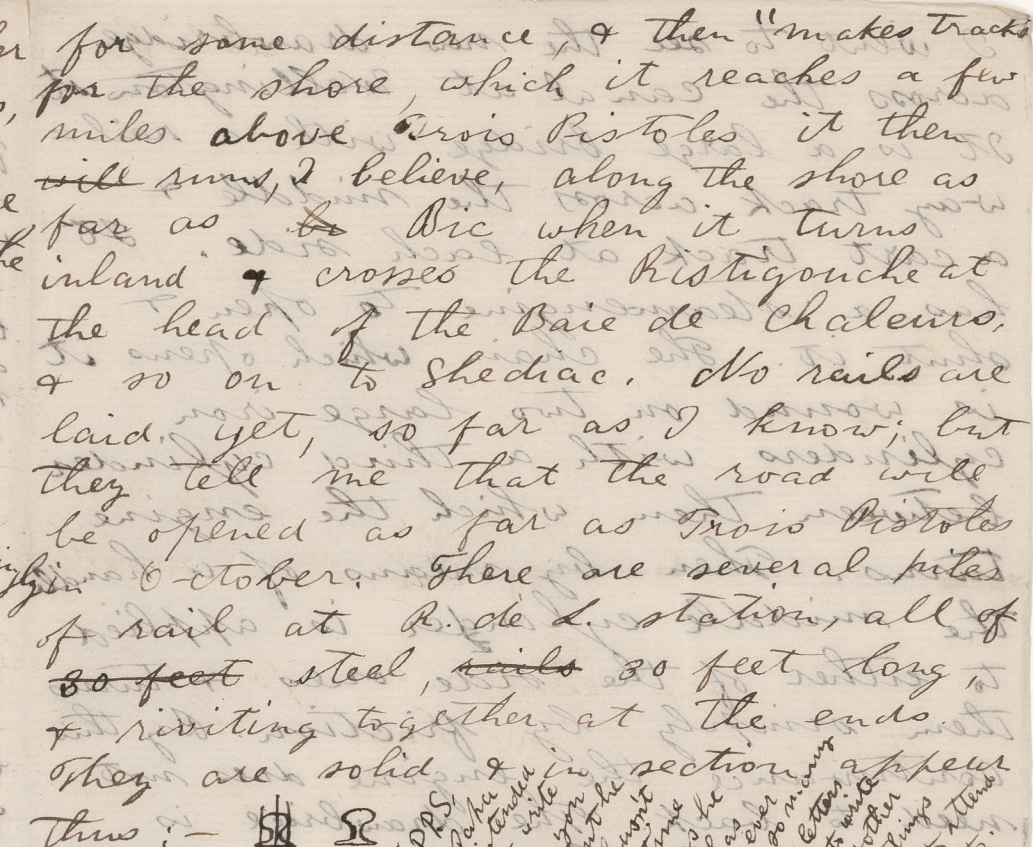 for some distance, & then "makes tracks
for the shore, which it reaches a few
miles above Trois Pistoles it then
will runs, I believe, along the shore as
far as be Bic when it turns
inland & crosses the Ristigouche at
the head of the Baie de Chaleurs,
& so on to Shediac. No rails are
laid yet, so far as I know; but
they tell me that the road will
be opened as far as Trois Pistoles
in October. There are several piles
of rail at R. de L. station, all of
30 feet steel, rails 30 feet long,
& riviting together at the ends.
They are solid & in section appear
thus :-
P.P.S.
write
you
won't
me
as
ever
so many
letters
to write
other
things
attend